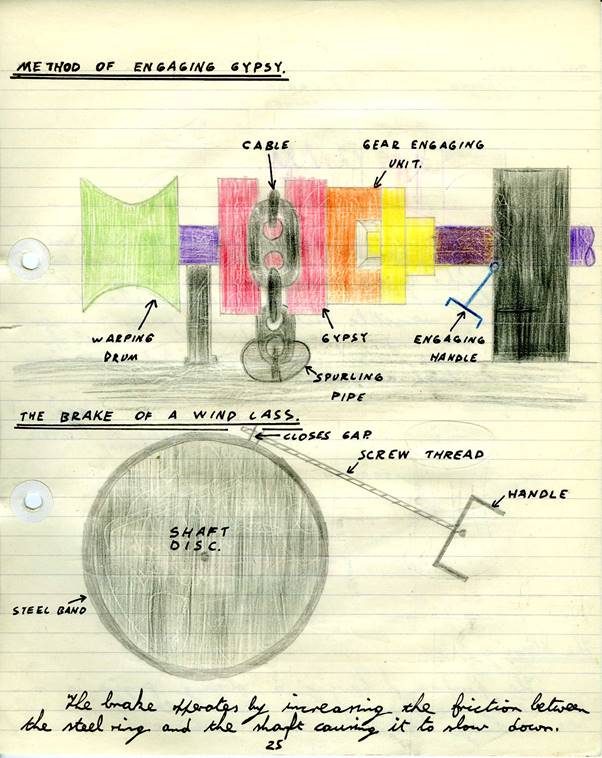 METHOD OF ENGAGING GYPSY.
CABLE
GEAR ENGAGING
UNIT.
WARPING
DRUM
GYPSY
ENGAGING
HANDLE
SPURLING
PIPE
THE BRAKE OF A WIND LASS.
CLOSES GAP.
SCREW THREAD
HANDLE
SHAFT
DISC.
STEEL BAND
The brake operates by increasing the friction between
the steel ring and the shaft causing it to slow down.
25